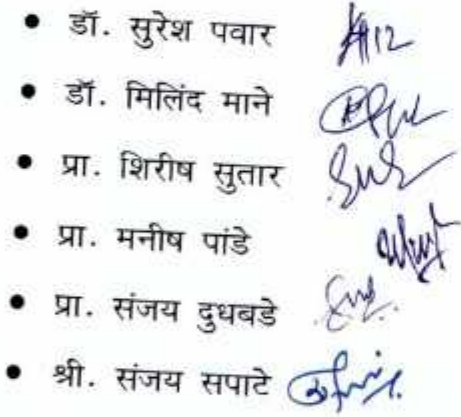 • डॉ. सुरेश पवार
• डॉ. मिलिंद माने
• प्रा. शिरीष सुतार
• प्रा. मनीष पांडे
• प्रा. संजय दुधबडे
• श्री. संजय सपाटे